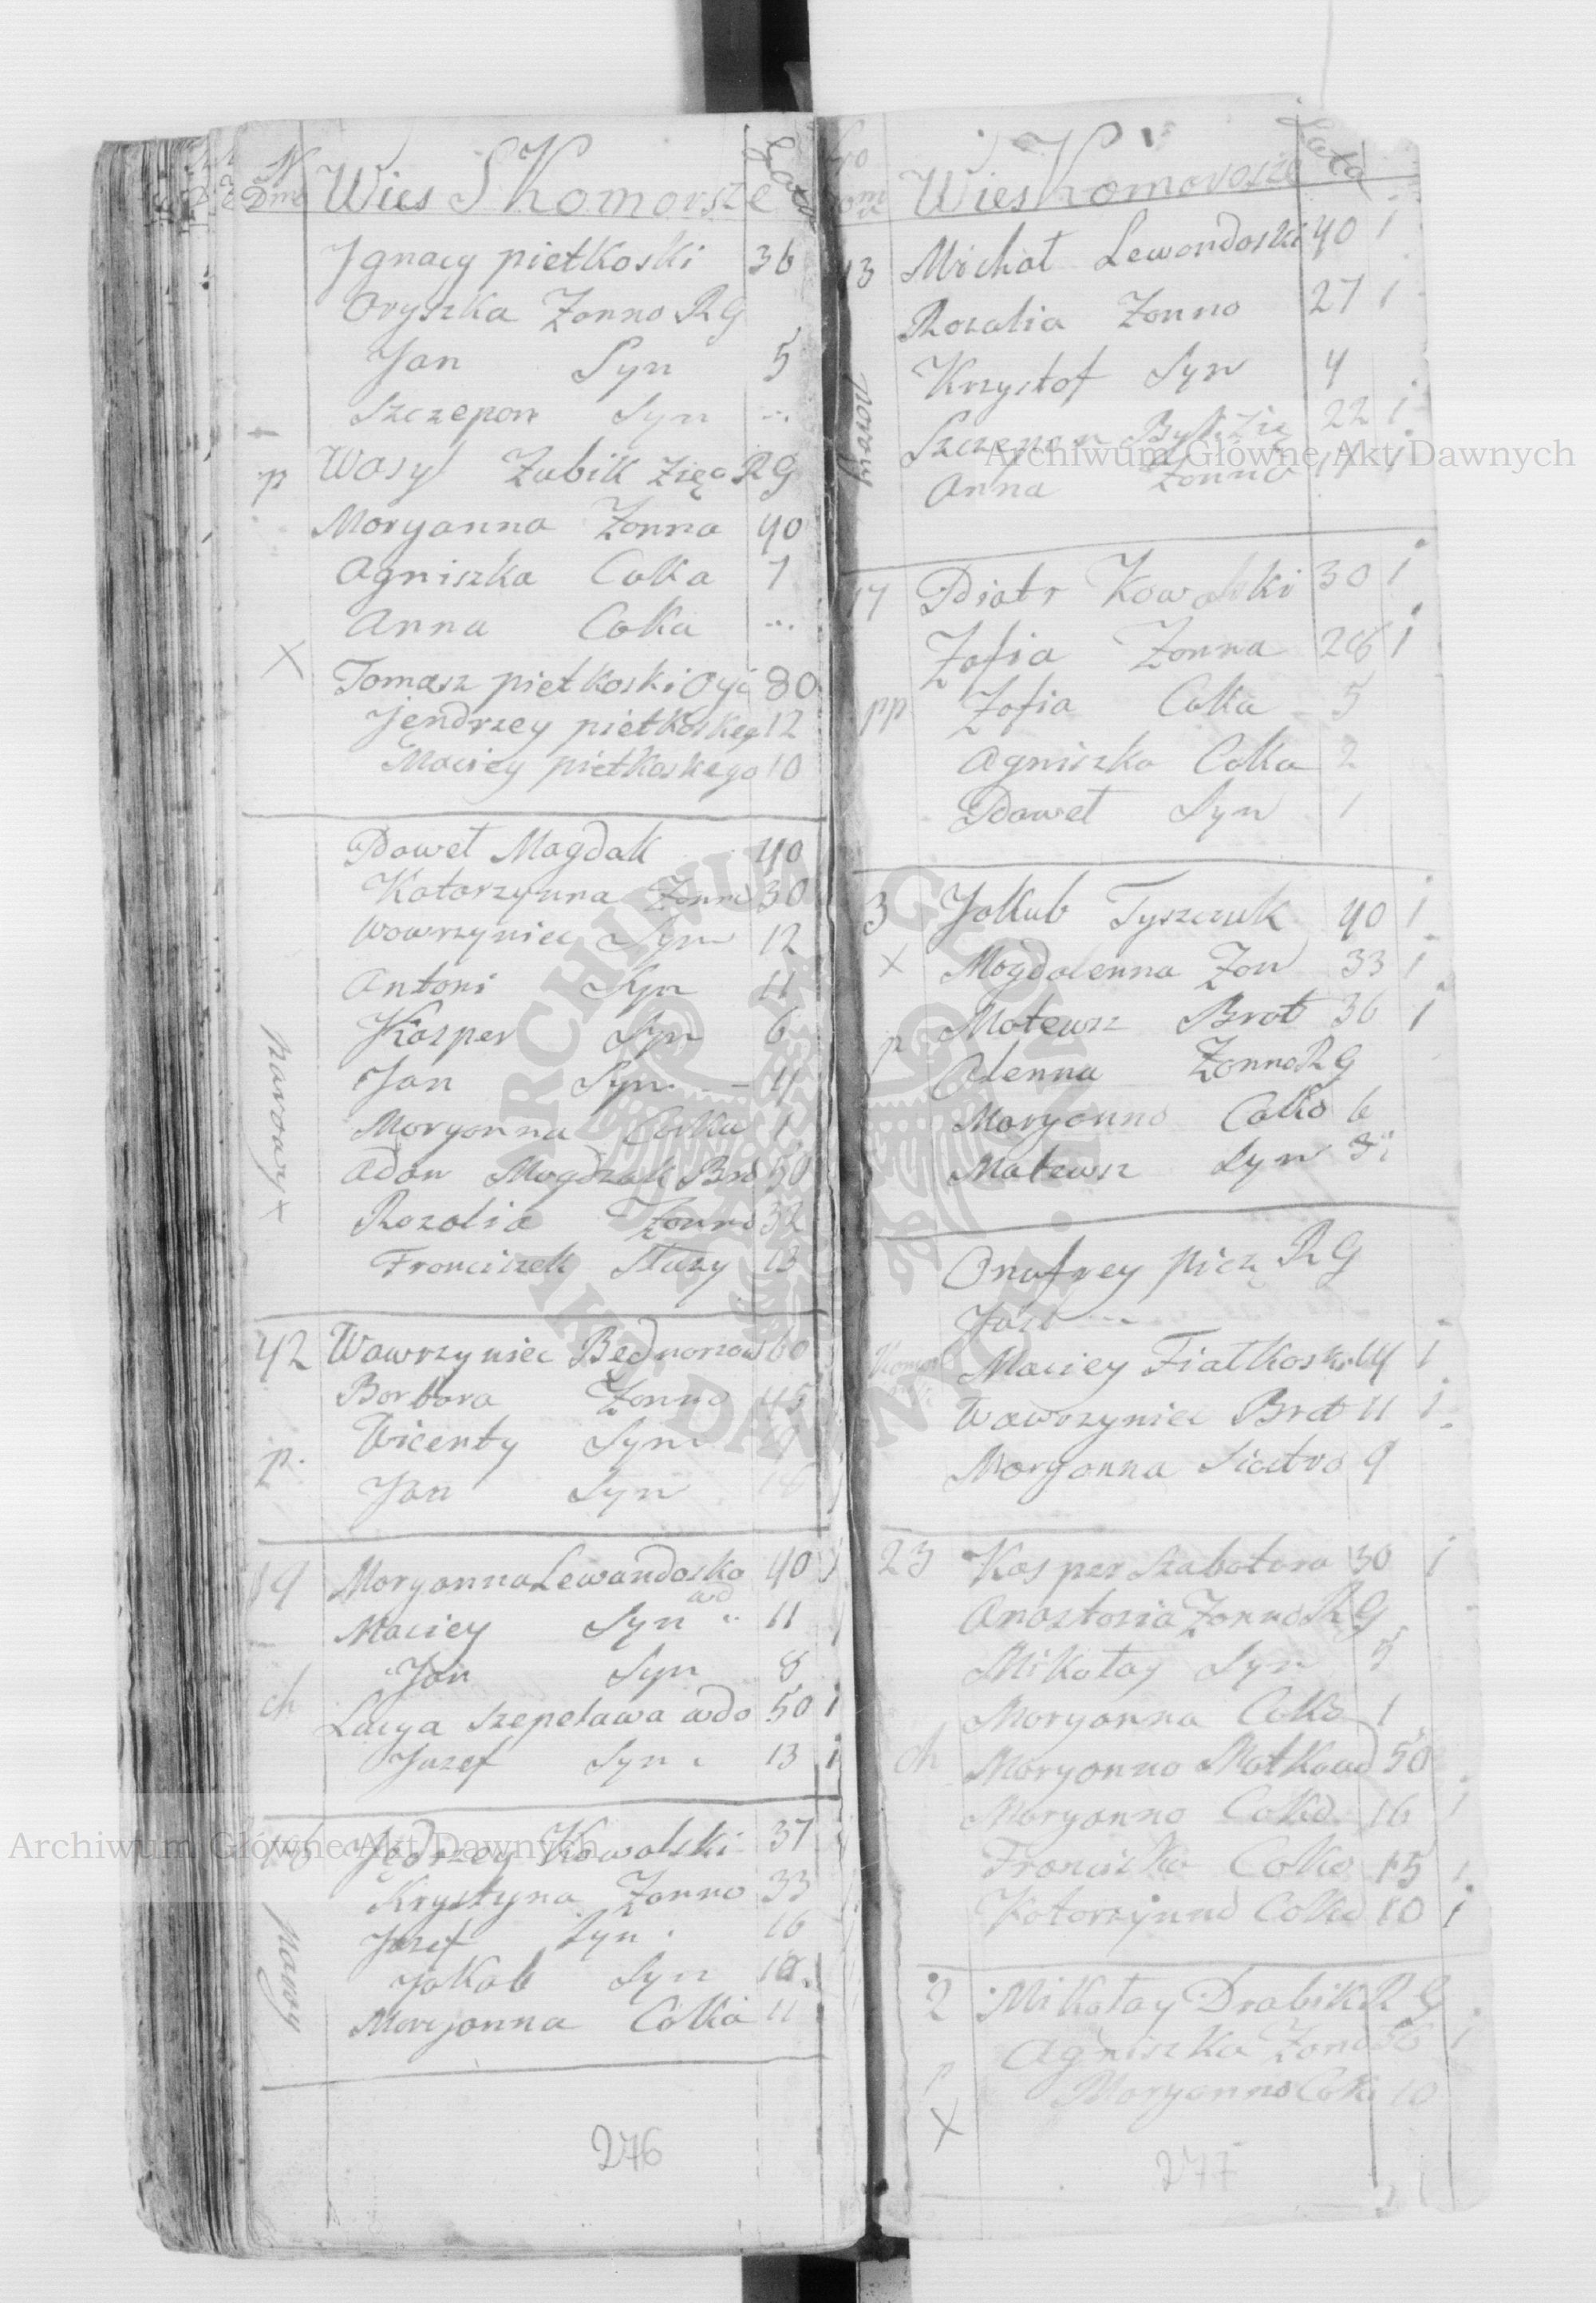 N
Dmu Wies Skomorsze Lata
Jgnacy pietkoski 36
Oryszka Zonno RG
Jan Syn 5
Szczepon Syn ...
p Wasyl Zubik Zięć RG
Moryanna Zonna 40
Agniszka Coka 7
Anna Coka ...
X Tomasz pietkoski Oyc 80
Jendrzey pietkoskeg 12
Maciey pietkoskego 10
Pawet Magdak 40
Katarzynna Zonna 30
Wowrzyniec Syn 12
Antoni Syn 11
Kasper Syn 6
Jan Syn 4
Moryonna Corka 1
Adon Mogdzak Bro 50
Rozolia Zonno 32
Fronciszek Sluzy 13
42 Wawrzyniec Bednorzow 60
Borbara Zonno 45
p. Wicenty Syn 19
Jan Syn 18
19 Moryanna Lewandosko 40
wd
Maciey Syn 11
Jan Syn 8
ch Lucya Szepetawa wdo 50 i
Jozef Syn 13 i
Jedrzey Kowalski 37
Krystyna Zonno 33
Jozef Syn 16
Nowy
Jakob Syn
Moryonna Colka 11
276
Wies Komorosze Lata
13 Michat Lewondoski 40 i
Rozalia Zonno 27 i
Krzystof Syn 4
Nowy
Szczepan 22 i
Anna Zonno
17 Piotr Kowolski 30 i
Zofia Zonna 26 i
pp Zofia Coka 5
Agniszka Colka 2
Pawet Syn 1
3 Jakub Tyszczuk 40 i
X Mogdalenna Zon 33 i
p Motewsz Brot 36 i
Olenna Zonno RG
Moryonno Colko 6
Matewsz Syn 3
Onufrey RG
Maciey Fiatkosk 14 i
Wawrzyniec Brat 11 i
Moryonna Siostro 9
23 Kasper Szabatara 30 i
Anastosia Zonno RG
Mikotay Syn
Moryonna Colko 1
ch Moryonno Motka wd 50
Moryonno Colka 16 i
Fronciszko Colko 15 i
Kotorzynno Colka 10 i
2 Mikotay Drabik RG
Agniszka Zono 36 i
p Moryonno Colk 10
X
277
Archiwum Główne Akt Dawnych
Archiwum Główne Akt Dawnych
ARCHIWUM GŁÓWNE AKT DAWNYCH